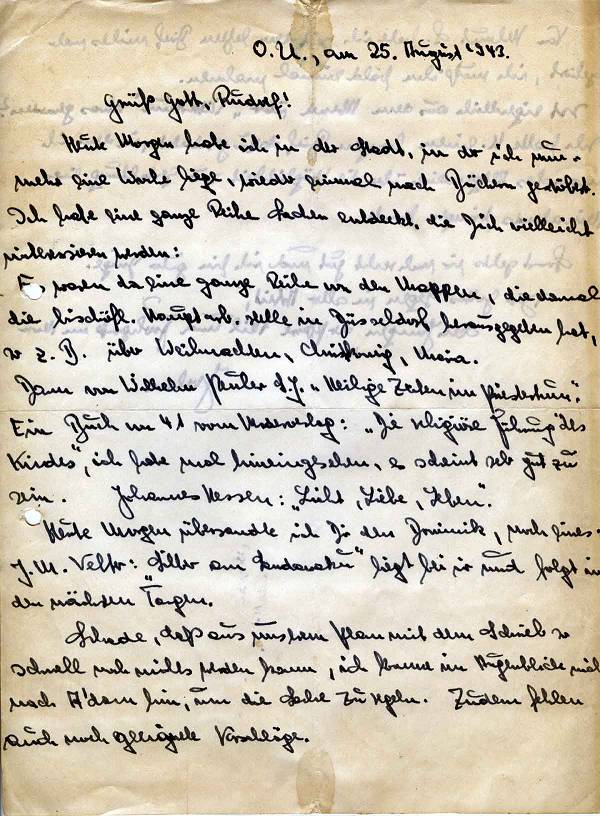 O.U., am 25. August 1943.
Grüß Gott, Rudolf!
Heute Morgen habe ich in der Stadt, in der ich nun-
mehr eine Woche liege, wieder einmal nach Büchern gestöbert.
Ich habe eine ganze Reihe Sachen entdeckt, die Dich vielleicht
interessieren werden:
Es waren da eine ganze Reihe von den Mappen, die damals
die bischöfl. Hauptarb. stelle in Düsseldorf herausgegeben hat,
so z. B. über Weihnachten, Christkönig, Maria.
Dann von Wilhelm S.J. „Heilige Zeiten im
Ein Buch von 41 vom „Die religiöse Führung des
Kindes", ich habe mal hineingesehen, es scheint sehr gut zu
sein. Johannes Hessen: „Licht, Liebe, Leben".
Heute Morgen übersandte ich Dir den Dominik, noch eines
J.M. Velter: liegt bei mir und folgt in
den nächsten Tagen.
Schade, daß aus unserem Plan mit dem so
schnell noch nichts werden kann, ich komme im Augenblick nicht
nach A'dam hin, um die Sache zu regeln. Zudem fehlen
auch noch geeignete Vorschläge.